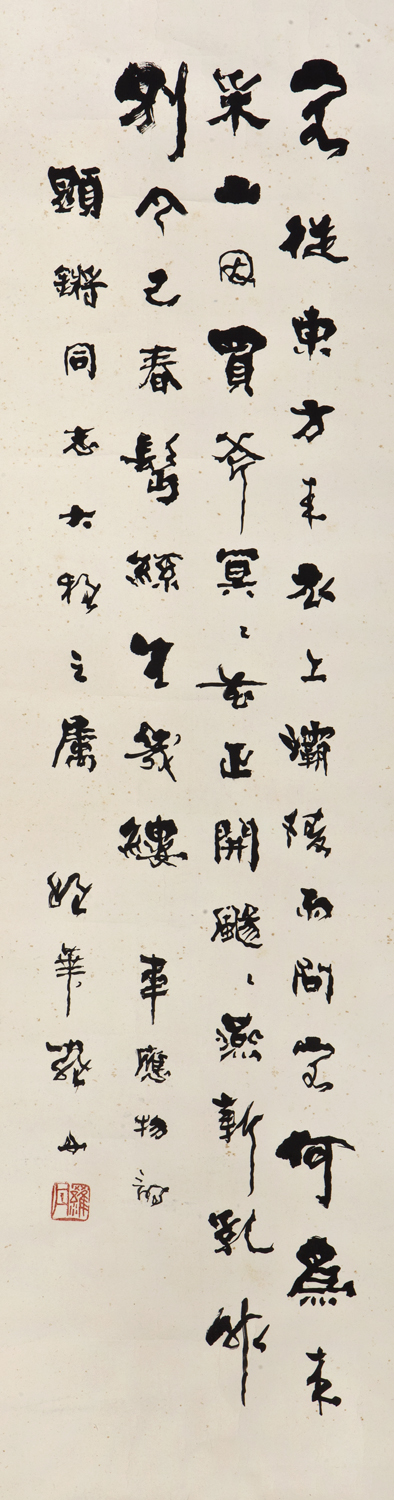 客從東方来衣上灞陵雨問客何為来
采山因買斧冥〻花正開颺〻燕新乳昨
別今已春鬢絲生幾縷 韋應物詩
顯鏘同志大雅之屬 稚華羅丹
羅丹